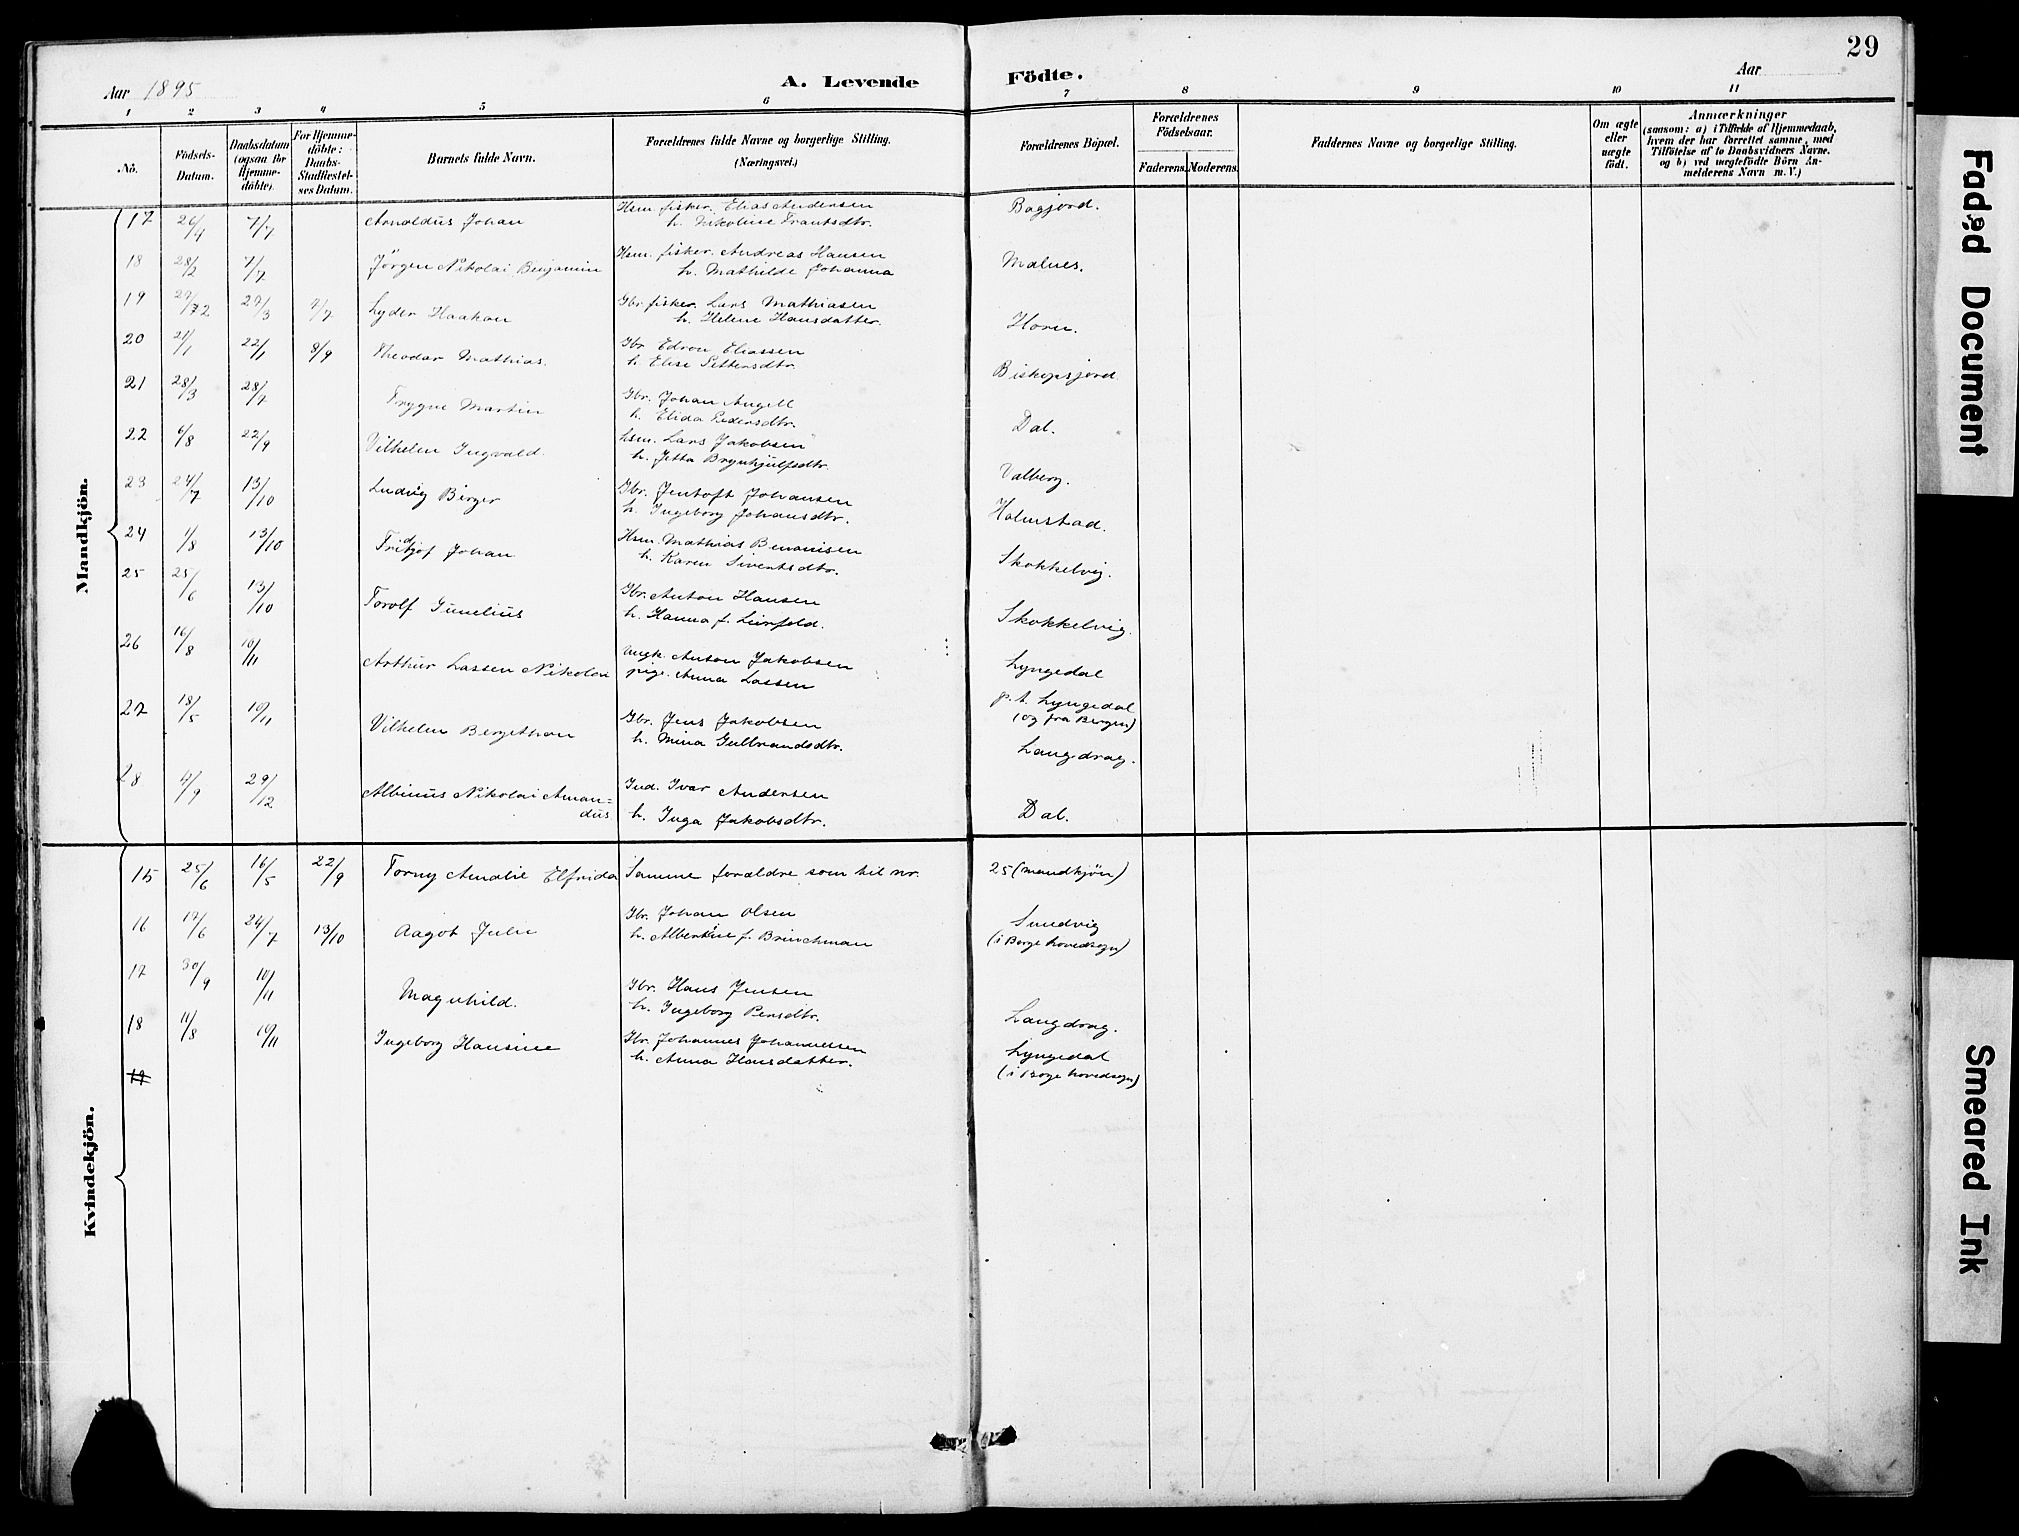 29
Aar 1895
A. Levende Födte.
Aar
1 2 3 4 5 6 7 8 9 10 11
No. Födsels-Datum. Daabsdatum (ogsaa for Hjemme-döbte). For Hjemme-döbte: Daabs-Stadfæstel-ses Datum. Barnets fulde Navn. Forældrenes fulde Navne og borgerlige Stilling. (Næringsvei.) Forældrenes Bopæl. Forældrenes Födselsaar. Faderens. Moderens. Faddernes Navne og borgerlige Stilling. Om ægte eller uægte født. Anmærkninger (saasom: a) i Tilfælde af Hjemmedaab, hvem der har forrettet samme, med Tilföielse af to Daabsvidners Navne, og b) ved uægtefödte Börn An-melderens Navn m. V.)
Mandkjön.
17 26/4 7/7 Arnoldus Johan Hsm. fisker. Elias Andersen Bogjord.
h. Nikoline Frantsdtr.
18 28/2 7/7 Jörgen Nikolai Benjamin Hsm. fisker. Andreas Hansen Malnes.
h. Mathilde Johanna
19 27/3 7/7 Lyder Haakon Gbr. fisker. Lars Mathiasen Horn.
h. Helene Hansdatter.
20 21/1 22/1 8/9 Theodor Mathias. Gbr. Edvon Eliassen Biskopsjord.
h. Elise Pettersdtr.
21 28/3 28/7 Trygve Martin Gbr. Johan Angell Dal.
h. Elida Pedersdtr.
22 6/8 22/9 Vilhelm Ingvald. hsm. Lars Jakobsen Valberg.
h. Jetta Brynhjulfsdtr.
23 24/7 13/10 Ludvig Birger Gbr. Jentoft Johansen Holmstad.
h. Ingeborg Johansdtr.
24 1/8 13/10 Fridtjof Johan Hsm. Mathias Benonisen Skokkelvig.
h. Karen Sivertsdtr.
25 25/6 13/10 Torolf Gunelius Gbr. Anton Hansen Skokkelvig.
h. Hanna f.
26 16/8 10/11 Arthur Lassen Nikolai Ungk. Anton Jakobsen Lyngedal
pige. Anna Lassen p. t. Lyngedal
(og fra Bergen)
27 18/5 10/11 Vilhelm Bergethon Gbr. Jens Jakobsen Langdrag.
h. Mina Gulbrandsdtr.
28 4/9 29/12 Albinus Nikolai Aman= Ind. Ivar Andersen Dal.
dus h. Inga Jakobsdtr.
Kvindekjön.
15 25/6 16/5 22/9 Torny Amalie Elfrida Samme forældre som til nr. 25 (mandkjön)
16 17/6 24/7 13/10 Aagot Julie Gbr. Johan Olsen Sundvig
h. Albertine f. Brinchman (i Borge hovedsogn)
17 30/9 10/11 Magnhild. Gbr. Hans Jensen Langdrag.
h. Ingeborg Persdtr.
18 11/8 10/11 Ingeborg Hansine Gbr. Johannes Johannessen Lyngedal
h. Anna Hansdatter. (i Borge hovedsogn)
Faded Document
Smeared Ink